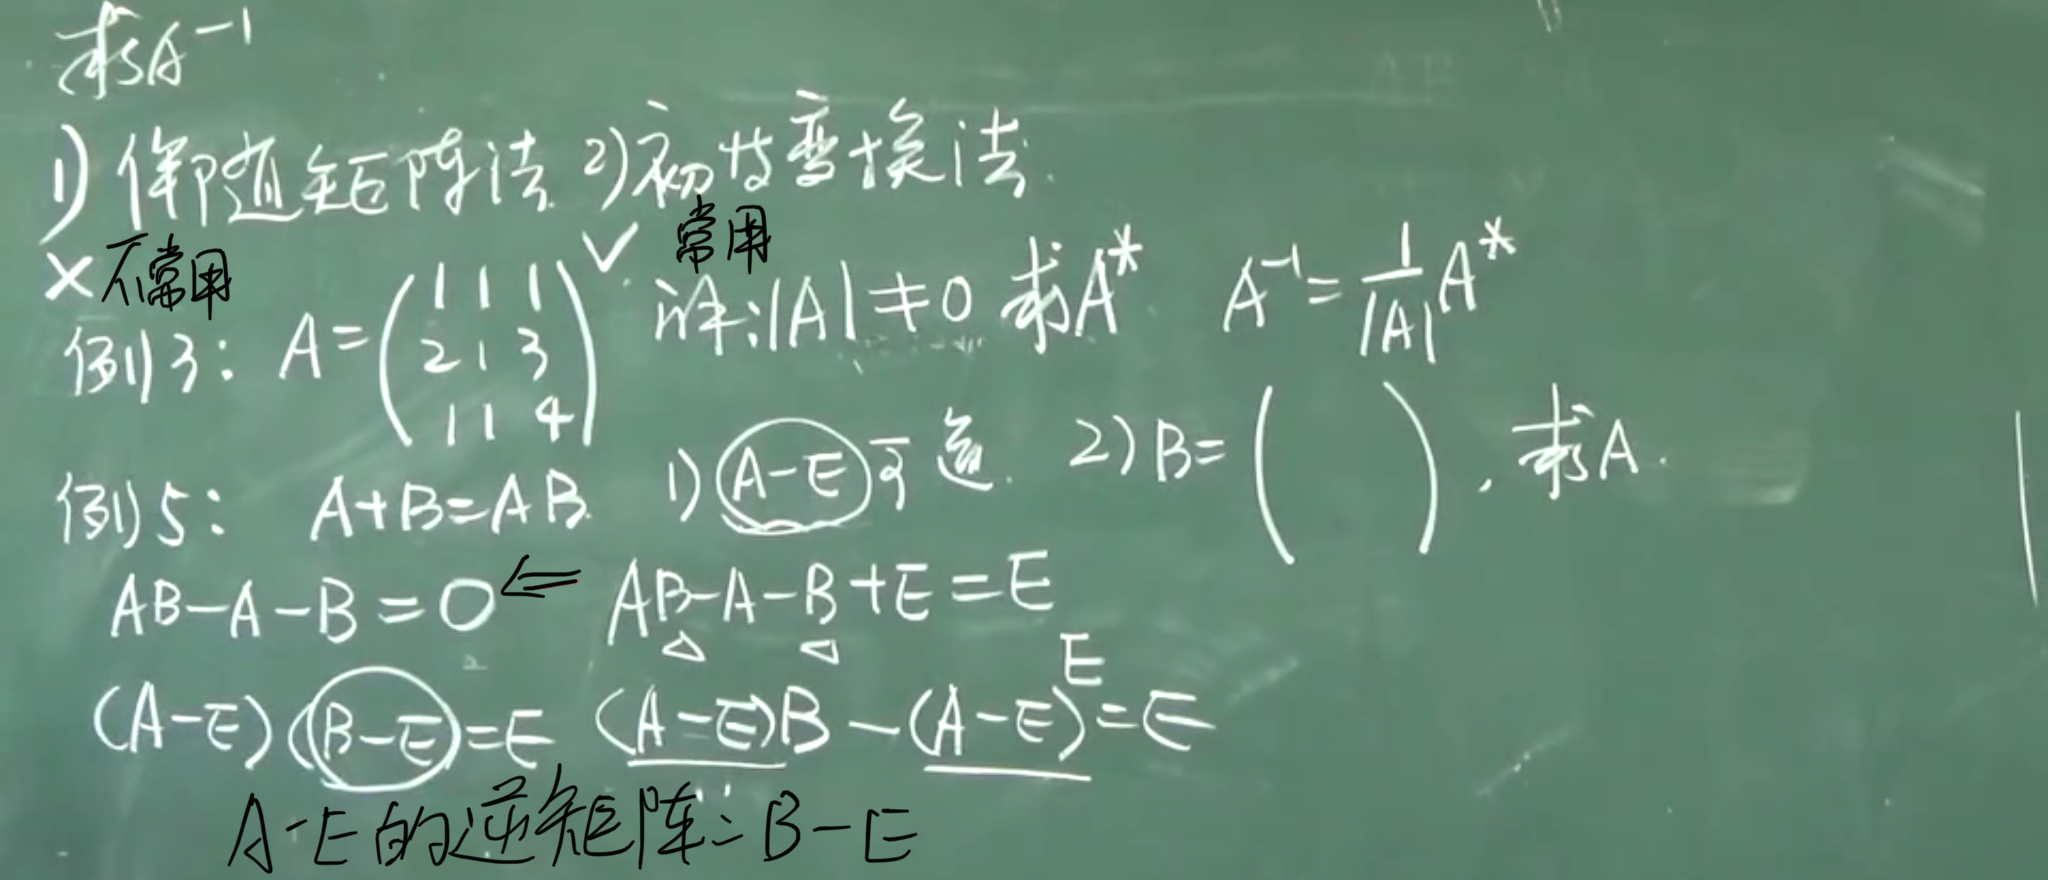 求A⁻¹
1) 伴随矩阵法 2) 初等变换法.
× 不常用 ✓ 常用
例3: A=(1 1 1; 2 1 3; 1 1 4) 解:|A|≠0 求A* A⁻¹=1/|A| A*
例5: A+B=AB. 1) A-E可逆. 2) B=( ), 求A.
AB-A-B=O ⇐ AB-A-B+E=E
(A-E)(B-E)=E (A-E)B-(A-E)E=E
A-E的逆矩阵:B-E